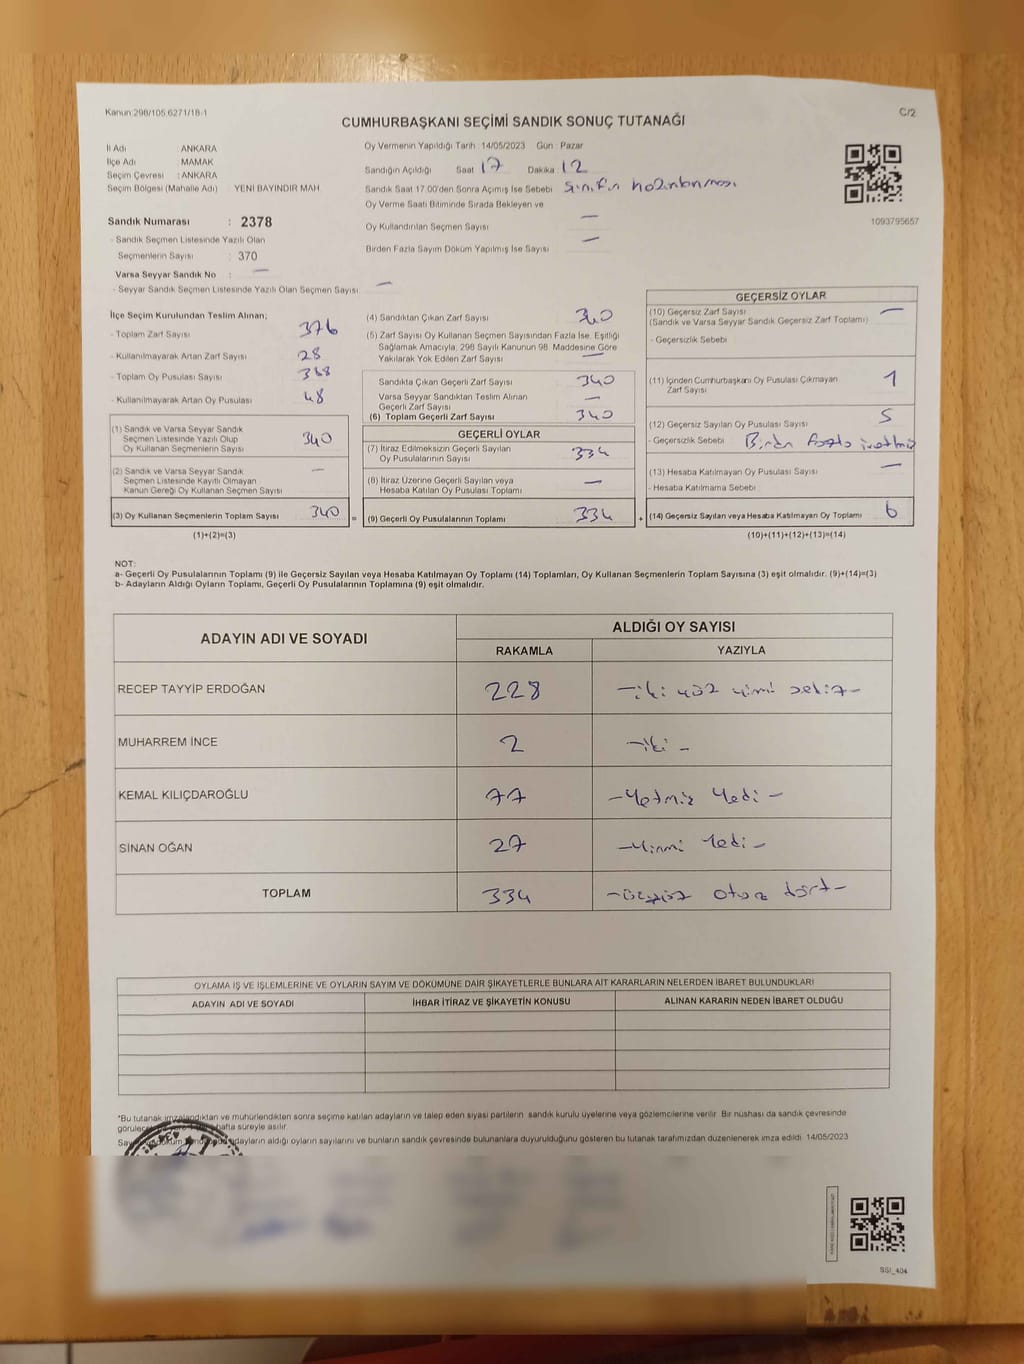 Kanun:298/105,6271/18-1
C/2
CUMHURBAŞKANI SEÇİMİ SANDIK SONUÇ TUTANAĞI
İl Adı : ANKARA
İlçe Adı : MAMAK
Seçim Çevresi : ANKARA
Seçim Bölgesi (Mahalle Adı) : YENİ BAYINDIR MAH.
Oy Vermenin Yapıldığı Tarih 14/05/2023 Gün : Pazar
Sandığın Açıldığı Saat 17 Dakika 12
Sandık Saat 17.00'den Sonra Açılmış İse Sebebi sınıfın hazırlanması
Oy Verme Saati Bitiminde Sırada Bekleyen ve
Oy Kullandırılan Seçmen Sayısı —
Birden Fazla Sayım Döküm Yapılmış İse Sayısı —
1093795657
Sandık Numarası : 2378
- Sandık Seçmen Listesinde Yazılı Olan
Seçmenlerin Sayısı : 370
Varsa Seyyar Sandık No : —
- Seyyar Sandık Seçmen Listesinde Yazılı Olan Seçmen Sayısı: —
İlçe Seçim Kurulundan Teslim Alınan;
- Toplam Zarf Sayısı 376
- Kullanılmayarak Artan Zarf Sayısı 28
- Toplam Oy Pusulası Sayısı
- Kullanılmayarak Artan Oy Pusulası 48
(1) Sandık ve Varsa Seyyar Sandık
Seçmen Listesinde Yazılı Olup
Oy Kullanan Seçmenlerin Sayısı 340
(2) Sandık ve Varsa Seyyar Sandık
Seçmen Listesinde Kayıtlı Olmayan
Kanun Gereği Oy Kullanan Seçmen Sayısı —
(3) Oy Kullanan Seçmenlerin Toplam Sayısı 340
(1)+(2)=(3)
(4) Sandıktan Çıkan Zarf Sayısı 340
(5) Zarf Sayısı Oy Kullanan Seçmen Sayısından Fazla İse, Eşitliği
Sağlamak Amacıyla, 298 Sayılı Kanunun 98. Maddesine Göre
Yakılarak Yok Edilen Zarf Sayısı —
Sandıkta Çıkan Geçerli Zarf Sayısı 340
Varsa Seyyar Sandıktan Teslim Alınan
Geçerli Zarf Sayısı —
(6) Toplam Geçerli Zarf Sayısı 340
GEÇERLİ OYLAR
(7) İtiraz Edilmeksizin Geçerli Sayılan
Oy Pusulalarının Sayısı 334
(8) İtiraz Üzerine Geçerli Sayılan veya
Hesaba Katılan Oy Pusulası Toplamı —
= (9) Geçerli Oy Pusulalarının Toplamı 334 +
GEÇERSİZ OYLAR
(10) Geçersiz Zarf Sayısı —
(Sandık ve Varsa Seyyar Sandık Geçersiz Zarf Toplamı)
- Geçersizlik Sebebi
(11) İçinden Cumhurbaşkanı Oy Pusulası Çıkmayan
Zarf Sayısı 1
(12) Geçersiz Sayılan Oy Pusulası Sayısı 5
- Geçersizlik Sebebi Birden fazla
(13) Hesaba Katılmayan Oy Pusulası Sayısı —
- Hesaba Katılmama Sebebi
(14) Geçersiz Sayılan veya Hesaba Katılmayan Oy Toplamı 6
(10)+(11)+(12)+(13)=(14)
NOT:
a- Geçerli Oy Pusulalarının Toplamı (9) ile Geçersiz Sayılan veya Hesaba Katılmayan Oy Toplamı (14) Toplamları, Oy Kullanan Seçmenlerin Toplam Sayısına (3) eşit olmalıdır. (9)+(14)=(3)
b- Adayların Aldığı Oyların Toplamı, Geçerli Oy Pusulalarının Toplamına (9) eşit olmalıdır.
ADAYIN ADI VE SOYADI
ALDIĞI OY SAYISI
RAKAMLA YAZIYLA
RECEP TAYYİP ERDOĞAN 228 – iki yüz yirmi sekiz –
MUHARREM İNCE 2 – iki –
KEMAL KILIÇDAROĞLU 77 – Yetmiş Yedi –
SİNAN OĞAN 27 – Yirmi Yedi –
TOPLAM 334 – üçyüz otuz dört –
OYLAMA İŞ VE İŞLEMLERİNE VE OYLARIN SAYIM VE DÖKÜMÜNE DAİR ŞİKAYETLERLE BUNLARA AİT KARARLARIN NELERDEN İBARET BULUNDUKLARI
ADAYIN ADI VE SOYADI İHBAR İTİRAZ VE ŞİKAYETİN KONUSU ALINAN KARARIN NEDEN İBARET OLDUĞU
*Bu tutanak imzalandıktan ve mühürlendikten sonra seçime katılan adayların ve talep eden siyasi partilerin sandık kurulu üyelerine veya gözlemcilerine verilir. Bir nüshası da sandık çevresinde
hafta süreyle asılır.
adayların aldığı oyların sayılarını ve bunların sandık çevresinde bulunanlara duyurulduğunu gösteren bu tutanak tarafımızdan düzenlenerek imza edildi. 14/05/2023
SSI_404